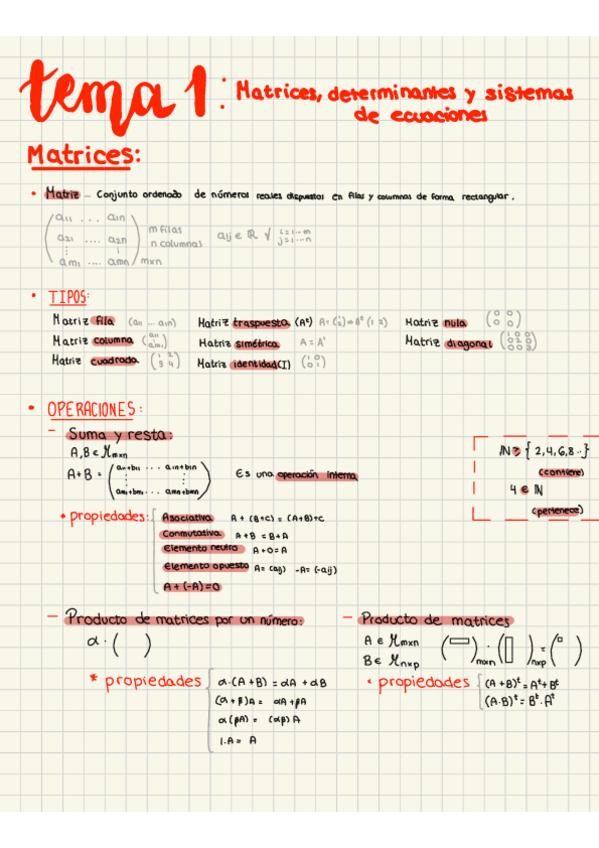 tema 1: Matrices, determinantes y sistemas
de ecuaciones
Matrices:
• Matriz _ Conjunto ordenado de números reales dispuestos en filas y columnas de forma rectangular.
( a11 . . . a1n
a21 .... a2n
⋮ ⋮
am1 .... amn ) mxn
m filas
n columnas
aij ∈ ℝ ∀ i=1...m
j=1...n
• TIPOS:
Matriz fila (a11 ... a1n)
Matriz columna (a11 ⋮ am1)
Matriz cuadrada (1 2
3 4)
Matriz traspuesta (Aᵗ) A = (1 2) ⇒ Aᵗ (1 2)
Matriz simétrica A = Aᵗ
Matriz identidad (I) (1 0
0 1)
Matriz nula (0 0
0 0)
Matriz diagonal
• OPERACIONES:
– Suma y resta:
A, B ∈ Mmxn
A+B = ( a11+b11 ... a1n+b1n
⋮ ⋮
am1+bm1 ... amn+bmn )
Es una operación interna
ℕ ⊇ { 2,4,6,8..}
(contiene)
4 ∈ ℕ
(pertenece)
• propiedades:
Asociativa A + (B+C) = (A+B)+C
Conmutativa A+B = B+A
Elemento neutro A+0=A
Elemento opuesto A= (aij) -A= (-aij)
A+(-A)=0
– Producto de matrices por un número:
α · ( )
* propiedades
α·(A+B) = αA + αB
(α+β)A = αA+βA
α(βA) = (αβ)A
1.A = A
– Producto de matrices
A ∈ Mmxn
B ∈ Mnxp
( )mxn · ( )nxp = ( )
• propiedades
(A+B)ᵗ = Aᵗ+Bᵗ
(A·B)ᵗ = Bᵗ·Aᵗ